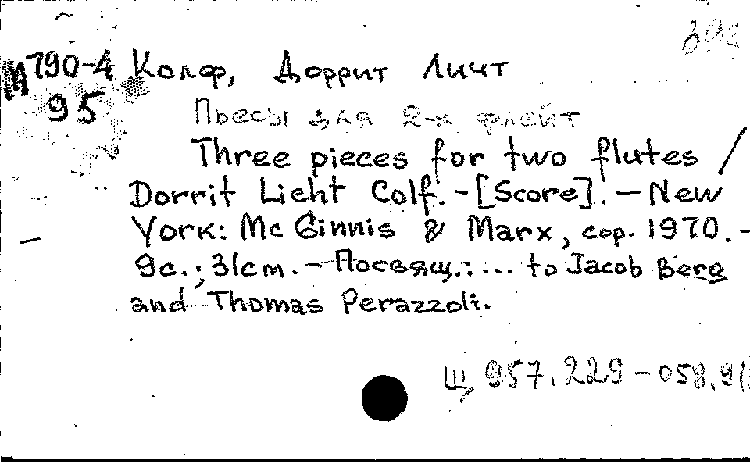 М790-4 Колф, Доррит Личт
95 Пьесы для 2-х флейт
Three pieces for two flutes /
Dorrit Licht Colf. - [Score]. - New
York: Mc Ginnis & Marx, cop. 1970. -
9c.; 31cm. - Посвящ.: ... to Jacob Berg
and Thomas Perazzoli.
Щ 957.229-058.9(